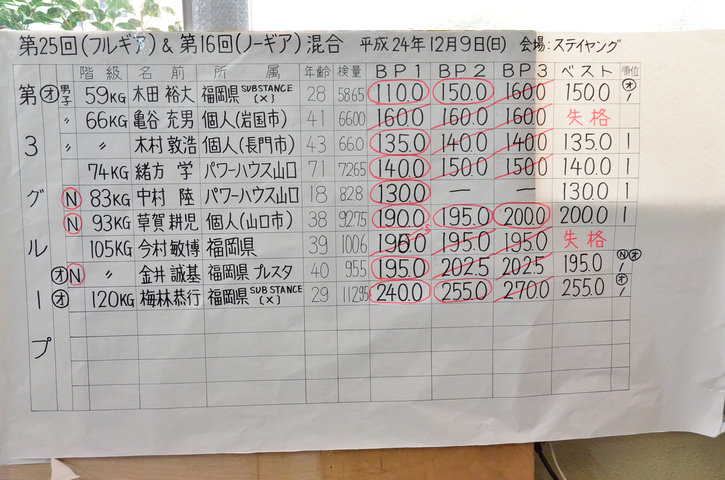 第25回(フルギア) & 第16回(ノーギア) 混合 平成24年12月9日(日) 会場:ステイヤング
階級 名前 所属 年齢 検量 BP1 BP2 BP3 ベスト 順位
第3グループ
オ 男子 59KG 木田 裕大 福岡県 SUBSTANCE (X) 28 5865 110.0 150.0 160.0 150.0 オ 1
〃 66KG 亀谷 充男 個人(岩国市) 41 6600 160.0 160.0 160.0 失格
〃 〃 木村 敦浩 個人(長門市) 43 660 135.0 140.0 140.0 135.0 1
74KG 緒方 学 パワーハウス山口 71 7265 140.0 150.0 150.0 140.0 1
N 83KG 中村 陸 パワーハウス山口 18 828 130.0 — — 130.0 1
N 93KG 草賀 耕児 個人(山口市) 38 9275 190.0 195.0 200.0 200.0 1
105KG 今村 敏博 福岡県 39 1006 195.0 195.0 失格
オ N 〃 金井 誠基 福岡県 プレスタ 40 955 195.0 202.5 202.5 195.0 N オ 1
オ 120KG 梅林 恭行 福岡県 SUBSTANCE (X) 29 11295 240.0 255.0 270.0 255.0 オ 1